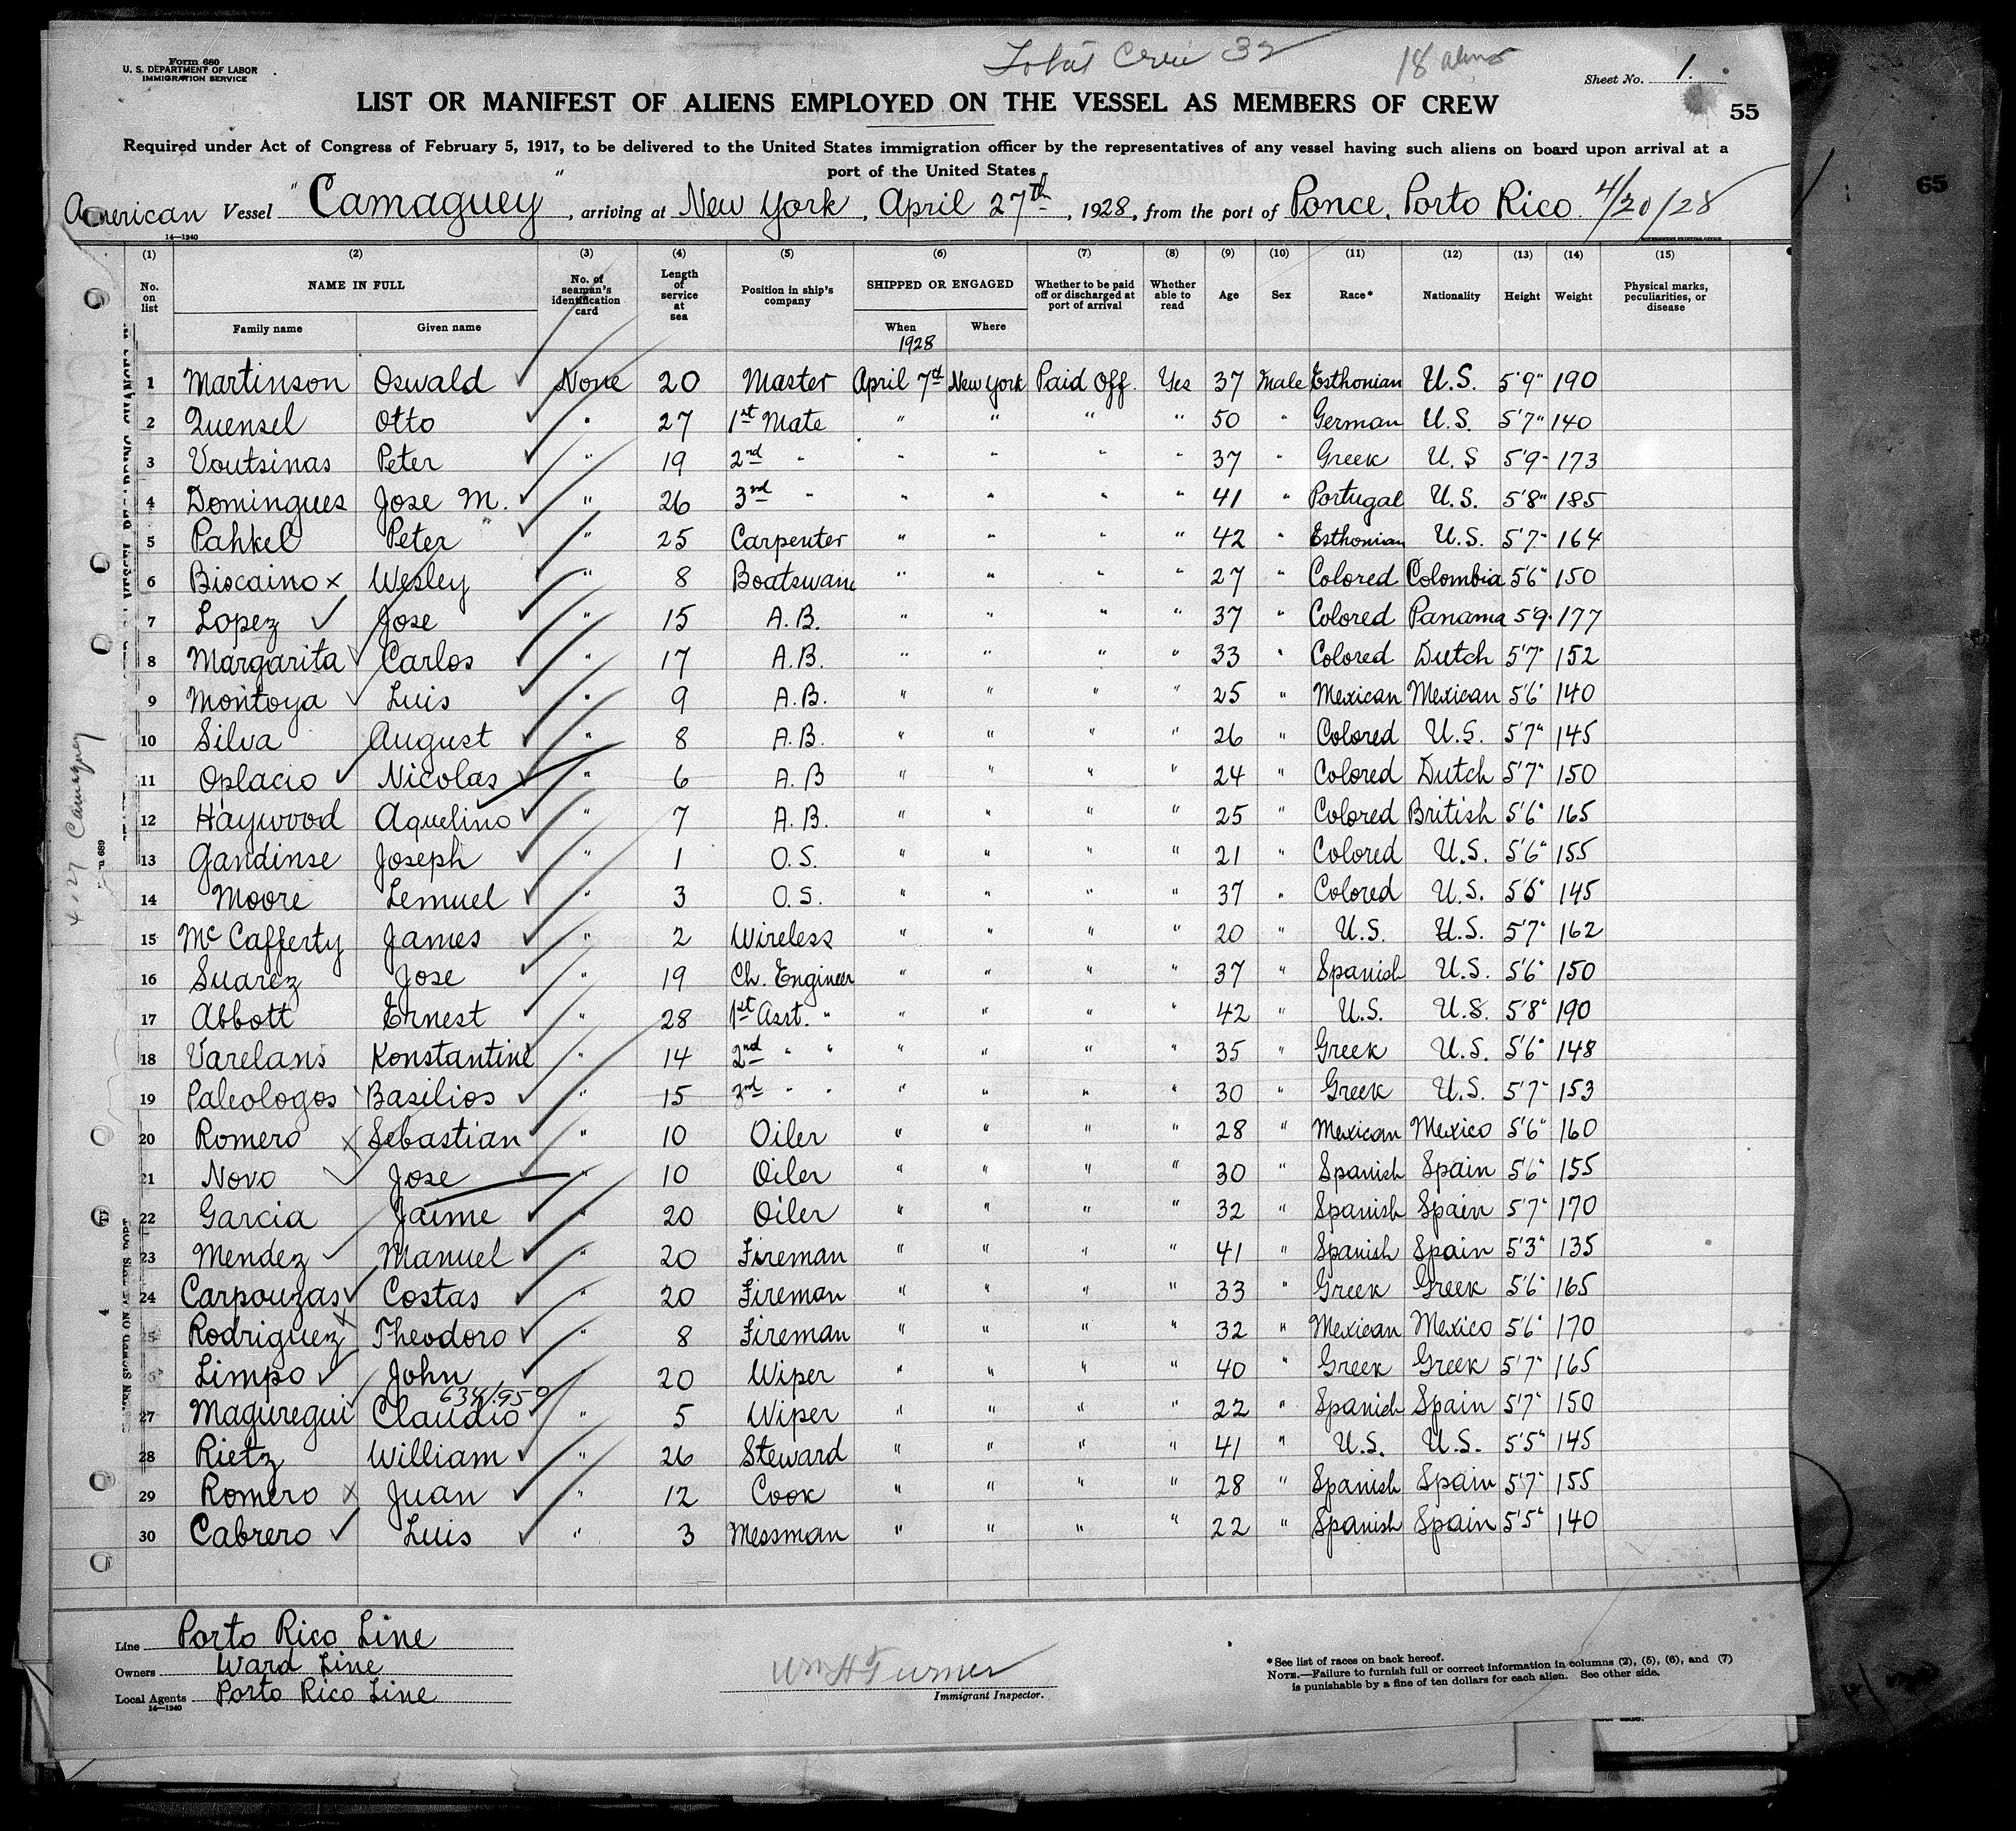 Total Crew 32
18 aliens
Form 680
U. S. DEPARTMENT OF LABOR
IMMIGRATION SERVICE
Sheet No. 1.
LIST OR MANIFEST OF ALIENS EMPLOYED ON THE VESSEL AS MEMBERS OF CREW
55
65
Required under Act of Congress of February 5, 1917, to be delivered to the United States immigration officer by the representatives of any vessel having such aliens on board upon arrival at a
port of the United States
American Vessel "Camaguey", arriving at New York, April 27th, 1928, from the port of Ponce, Porto Rico. 4/20/28
14—1240
(1) (2) (3) (4) (5) (6) (7) (8) (9) (10) (11) (12) (13) (14) (15)
No. on list NAME IN FULL No. of seaman's identification card Length of service at sea Position in ship's company SHIPPED OR ENGAGED Whether to be paid off or discharged at port of arrival Whether able to read Age Sex Race* Nationality Height Weight Physical marks, peculiarities, or disease
Family name Given name When Where
1928
1 Martinson Oswald None 20 Master April 7th New York Paid Off. Yes 37 Male Esthonian U.S. 5'9" 190
2 Quensel Otto " 27 1st Mate " " " " 50 " German U.S. 5'7" 140
3 Voutsinas Peter " 19 2nd " " " " " 37 " Greek U.S 5'9" 173
4 Domingues Jose M. " 26 3rd " " " " " 41 " Portugal U.S. 5'8" 185
5 Pahkel Peter " 25 Carpenter " " " " 42 " Esthonian U.S. 5'7" 164
6 Biscaino x Wesley " 8 Boatswain " " " " 27 " Colored Colombia 5'6" 150
7 Lopez ✓ Jose " 15 A.B. " " " " 37 " Colored Panama 5'9" 177
8 Margarita ✓ Carlos " 17 A.B. " " " " 33 " Colored Dutch 5'7" 152
9 Montoya ✓ Luis " 9 A.B. " " " " 25 " Mexican Mexican 5'6" 140
10 Silva August " 8 A.B. " " " " 26 " Colored U.S. 5'7" 145
11 Oplacio ✓ Nicolas " 6 A.B " " " " 24 " Colored Dutch 5'7" 150
12 Haywood Aquelino " 7 A.B. " " " " 25 " Colored British 5'6" 165
13 Gandinse Joseph " 1 O.S. " " " " 21 " Colored U.S. 5'6" 155
14 Moore Lemuel " 3 O.S. " " " " 37 " Colored U.S. 5'6" 145
15 McCafferty James " 2 Wireless " " " " 20 " U.S. U.S. 5'7" 162
16 Suarez Jose " 19 Ch. Engineer " " " " 37 " Spanish U.S. 5'6" 150
17 Abbott Ernest " 28 1st Asst. " " " " " 42 " U.S. U.S. 5'8" 190
18 Varelans Konstantine " 14 2nd " " " " " " 35 " Greek U.S. 5'6" 148
19 Paleologos Basilios " 15 3rd " " " " " " 30 " Greek U.S. 5'7" 153
20 Romero x Sebastian " 10 Oiler " " " " 28 " Mexican Mexico 5'6" 160
21 Novo ✓ Jose " 10 Oiler " " " " 30 " Spanish Spain 5'6" 155
22 Garcia Jaime " 20 Oiler " " " " 32 " Spanish Spain 5'7" 170
23 Mendez ✓ Manuel " 20 Fireman " " " " 41 " Spanish Spain 5'3" 135
24 Carpouzas ✓ Costas " 20 Fireman " " " " 33 " Greek Greek 5'6" 165
25 Rodriguez x Theodoro " 8 Fireman " " " " 32 " Mexican Mexico 5'6" 170
Limpo ✓ John 20 Wiper " " " " 40 " Greek Greek 5'7" 165
27 Maguregui ✓ Claudio " 5 Wiper " " " " 22 " Spanish Spain 5'7" 150
28 Rietz William " 26 Steward " " " " 41 " U.S. U.S. 5'5" 145
29 Romero x Juan " 12 Cook " " " " 28 " Spanish Spain 5'7" 155
30 Cabrero ✓ Luis " 3 Messman " " " " 22 " Spanish Spain 5'5" 140
4-27 Camaguey
Line Porto Rico Line
Owners Ward Line
Local Agents Porto Rico Line
14—1240
Wm H Turner
Immigrant Inspector.
*See list of races on back hereof.
NOTE.—Failure to furnish full or correct information in columns (2), (5), (6), and (7)
is punishable by a fine of ten dollars for each alien. See other side.